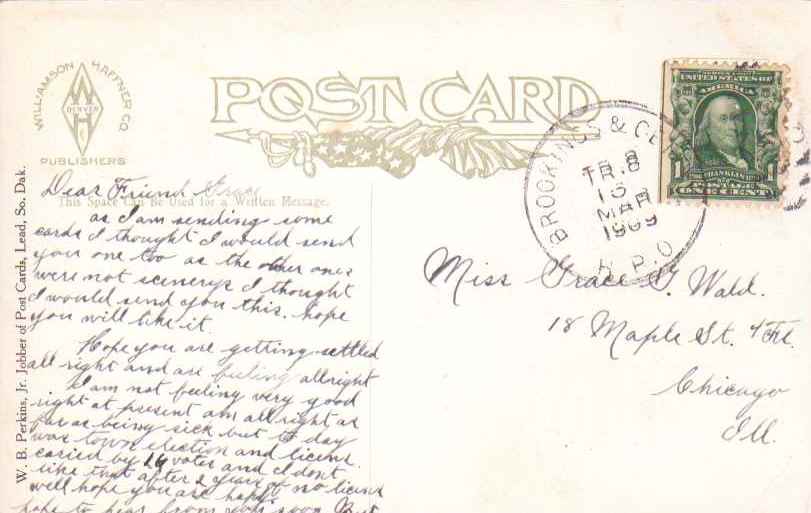 WILLIAMSON HAFFNER CO
DENVER
PUBLISHERS
POST CARD
This Space Can Be Used for a Written Message.
W. B. Perkins, Jr. Jobber of Post Cards, Lead, So. Dak.
Dear Friend Grace
as I am sending some
cards I thought I would send
you one too as the other ones
were not scenerys I thought
I would send you this. hope
you will like it.
Hope you are getting settled
all right and are feeling allright
I am not feeling very good
right at present am all right as
far as being sick but to day
was town election and licens.
caried by 16 votes and I dont
like that after 2 years of no licens
well hope you are happy
hope to hear from you soon
BROOKINGS &
TR. 8
15
MAR
1909
R. P. O.
SERIES 1902
UNITED STATES OF
AMERICA
1 FRANKLIN 1
POSTAGE
ONE CENT
Miss Grace G. Wald.
18 Maple St. 4 Fl.
Chicago
Ill.